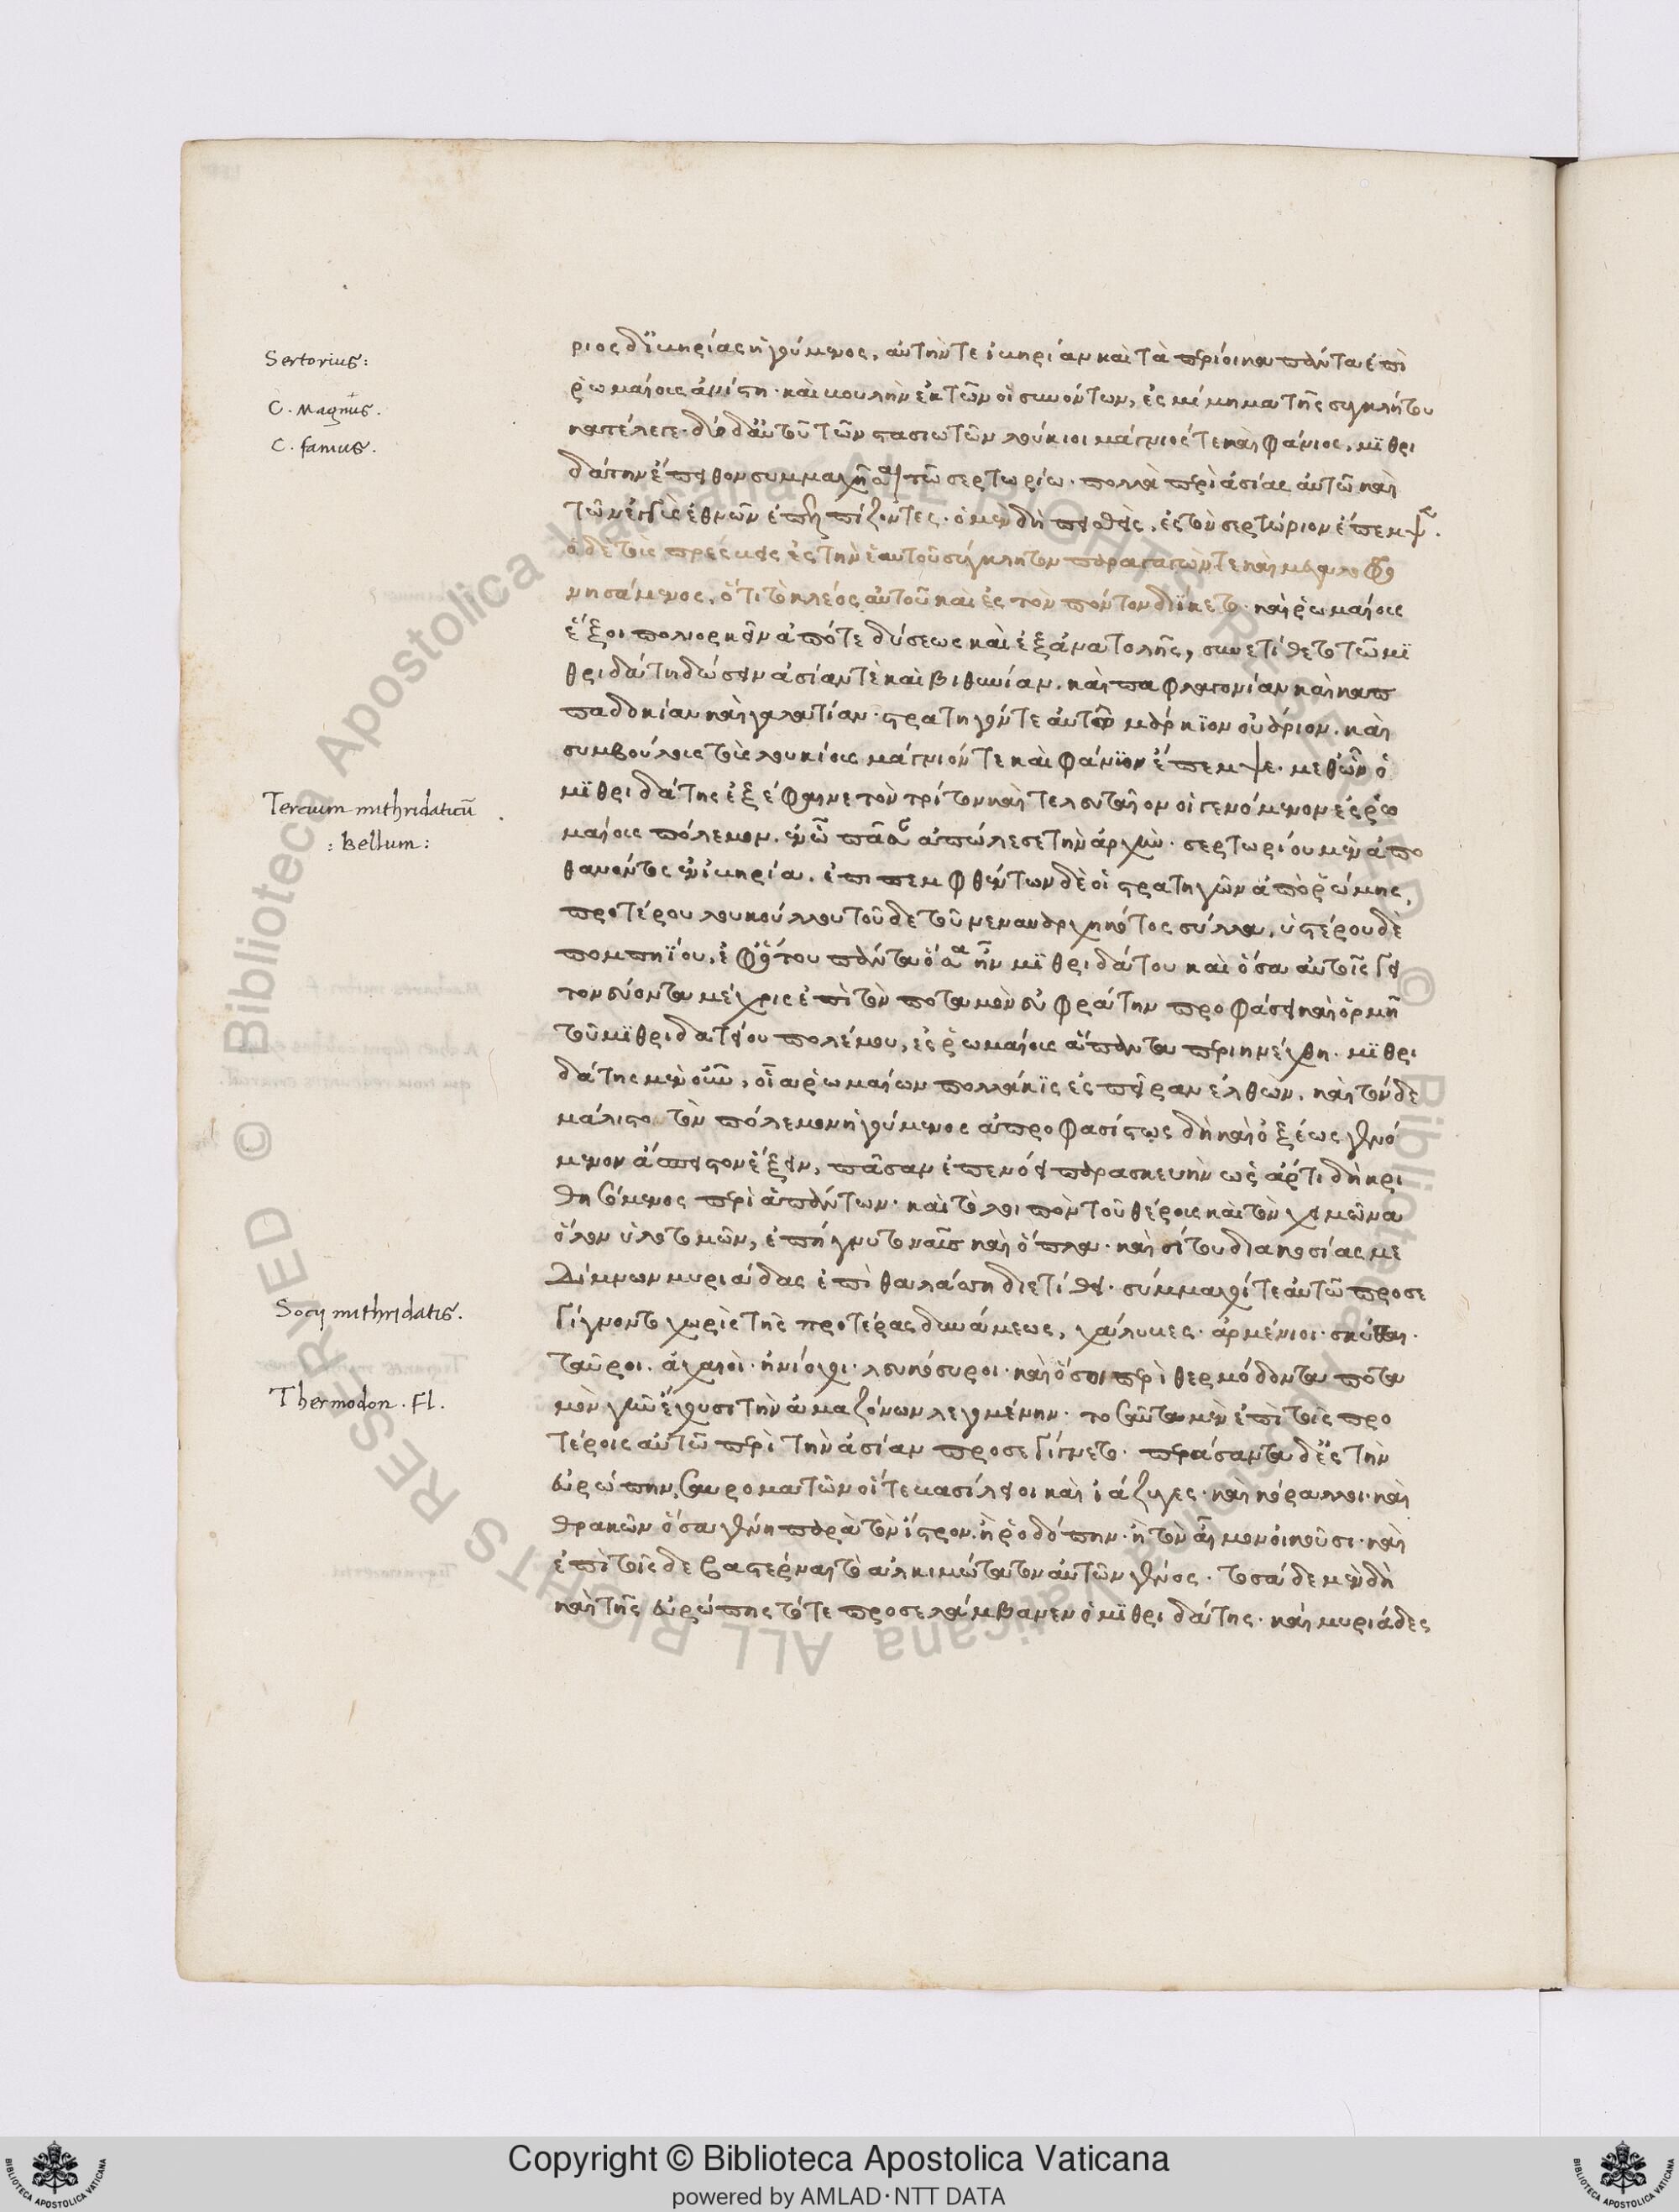 Sertorius:
C. Magnus.
C. fanius.
Tercium mithridaticū
: Bellum:
Socij mithridatis.
Thermodon. Fl.
ριος δ' ἰβηρίας ἡγούμενος, αὐτήν τε ἰβηρίαν καὶ τὰ περίοικα πάντα ἐπὶ
ῥωμαίοις ἀνίστη· καὶ βουλὴν ἐκ τῶν οἱ συνόντων, ἐς μίμημα τῆς συγκλήτου
κατέλεγε· δύο δ' αὐτοῦ τῶν στασιωτῶν λούκιοι μάγνιός τε καὶ φάνιος, μϊθρι
δάτην ἔπειθον συμμαχῆσαι τῷ σερτωρίῳ· πολλὰ περὶ ἀσίας αὐτῷ καὶ
τῶν ἐγγὺς ἐθνῶν ἐπελπίζοντες· ὁ μὲν δὴ πεισθεὶς, ἐς τὸν σερτώριον ἔπεμψε.
ὁ δὲ τοὺς πρέσβεις ἐς τὴν ἑαυτοῦ σύγκλητον παραγαγών τε καὶ μεγαλοφρο
νησάμενος, ὅτι τὸ κλέος αὐτοῦ καὶ ἐς τὸν πόντον διΐκετο· καὶ ῥωμαίους
ἕξοι πολιορκεῖν ἀπό τε δύσεως καὶ ἐξ ἀνατολῆς, συνετίθετο τῷ μϊ
θριδάτῃ δώσειν ἀσίαν τὲ καὶ βιθυνίαν. καὶ παφλαγονίαν καὶ καπ
παδοκίαν καὶ γαλατίαν· στρατηγόν τε αὐτῷ μάρκϊον οὐάριον. καὶ
συμβούλους τοὺς λουκίους μάγνιόν τε καὶ φάνϊον ἔπεμψε· μεθ' ὧν ὁ
μϊθριδάτης ἐξέφηνε τὸν τρίτον καὶ τελευταῖον οἱ γενόμενον ἐς ῥω
μαίους πόλεμον. ἐν ᾧ πᾶσαν ἀπώλεσε τὴν ἀρχὴν· σερτωρίου μὲν ἀπο
θανόντος ἐν ἰβηρία. ἐπιπεμφθέντων δὲ οἱ στρατηγῶν ἀπὸ ῥώμης,
προτέρου λουκούλλου τοῦδε τοῦ νεναυαρχηκότος σύλλα, ὑστέρου δὲ
πομπηΐου, ἐφ' ὅτου πάντα ὅσα ἦν μϊθριδάτου καὶ ὅσα αὐτοῖς γει
τονεύοντα μέχρις ἐπὶ τὸν ποταμὸν εὐφράτην προφάσει καὶ ὁρμῇ
τοῦ μϊθριδατείου πολέμου, ἐς ῥωμαίους ἅπαντα περιηνέχθη· μϊθρι
δάτης μὲν οὖν, οἷα ῥωμαίων πολλάκϊς ἐς πεῖραν ἐλθὼν. καὶ τόνδε
μάλιστα τὸν πόλεμον ἡγούμενος ἀπροφασίστως δὴ καὶ ὀξέως γενό
μενον ἄσπειστον ἕξειν, πᾶσαν ἐπενόει παρασκευὴν ὡς ἄρτι δὴ κρι
θησόμενος περὶ ἁπάντων· καὶ τὸ λοιπὸν τοῦ θέρους καὶ τὸν χειμῶνα
ὅλον ὑλοτομῶν, ἐπήγνυτο ναῦς καὶ ὅπλα· καὶ σίτου διακοσίας με
δίμνων μυριάδας ἐπὶ θαλάσσῃ διετίθει· σύμμαχοί τε αὐτῷ προσε
γίγνοντο χωρὶς τῆς προτέρας δυνάμεως, χάλυβες· ἀρμένιοι· σκύθαι·
ταῦροι. ἀχαιοὶ· ἡνίοχοι· λευκόσυροι· καὶ ὅσοι περὶ θερμόδοντα ποτα
μὸν γῆν ἔχουσι τὴν ἀμαζόνων λεγομένην· τοσαῦτα μὲν ἐπὶ τοῖς προ
τέροις αὐτῷ περὶ τὴν ἀσίαν προσεγίγνετο· περάσαντα δ' ἐς τὴν
εὐρώπην, σαυροματῶν οἵ τε βασίλειοι καὶ ἰάζυγες· καὶ κόραλλοι· καὶ
θρακῶν ὅσα γένη παρὰ τὸν ἴστρον. ἢ ῥοδόπην· ἢ τὸν αἷμον οἰκοῦσι· καὶ
ἐπὶ τοῖσδε βαστέρναι τὸ ἀλκιμώτατον αὐτῶν γένος· τοσάδε μὲν δὴ
καὶ τῆς εὐρώπης τότε προσελάμβανεν ὁ μϊθριδάτης· καὶ μυριάδες